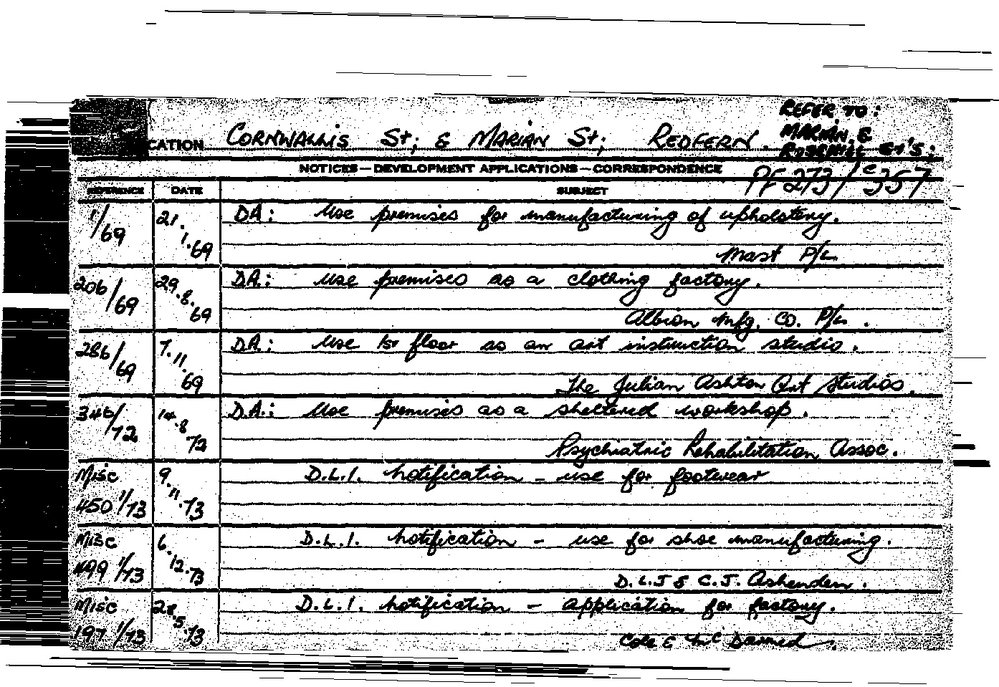 REFER TO:
MARIAN &
ROSEHILL ST'S;
CATION CORNWALLIS St; & MARIAN St; REDFERN.
NOTICES—DEVELOPMENT APPLICATIONS—CORRESPONDENCE
PF 273/C357
REFERENCE DATE SUBJECT
1/69 21.1.69 D.A: Use premises for manufacturing of upholstery.
Mast P/L
206/69 29.8.69 D.A.: Use premises as a clothing factory.
Albion Mfg. Co. P/L.
286/69 7.11.69 D.A: Use 1st floor as an art instruction studio.
The Julian Ashton Art Studios.
346/72 14.8.72 D.A: Use premises as a sheltered workshop.
Psychiatric Rehabilitation Assoc.
Misc 450 1/73 9.11.73 D.L.I. notification - use for footwear
Misc 499 1/73 6.12.73 D.L.I. notification - use for shoe manufacturing.
D.L.J & C.J. Ashenden.
Misc 197 1/73 28.5.73 D.L.I. notification - application for factory.
Cole & Mc